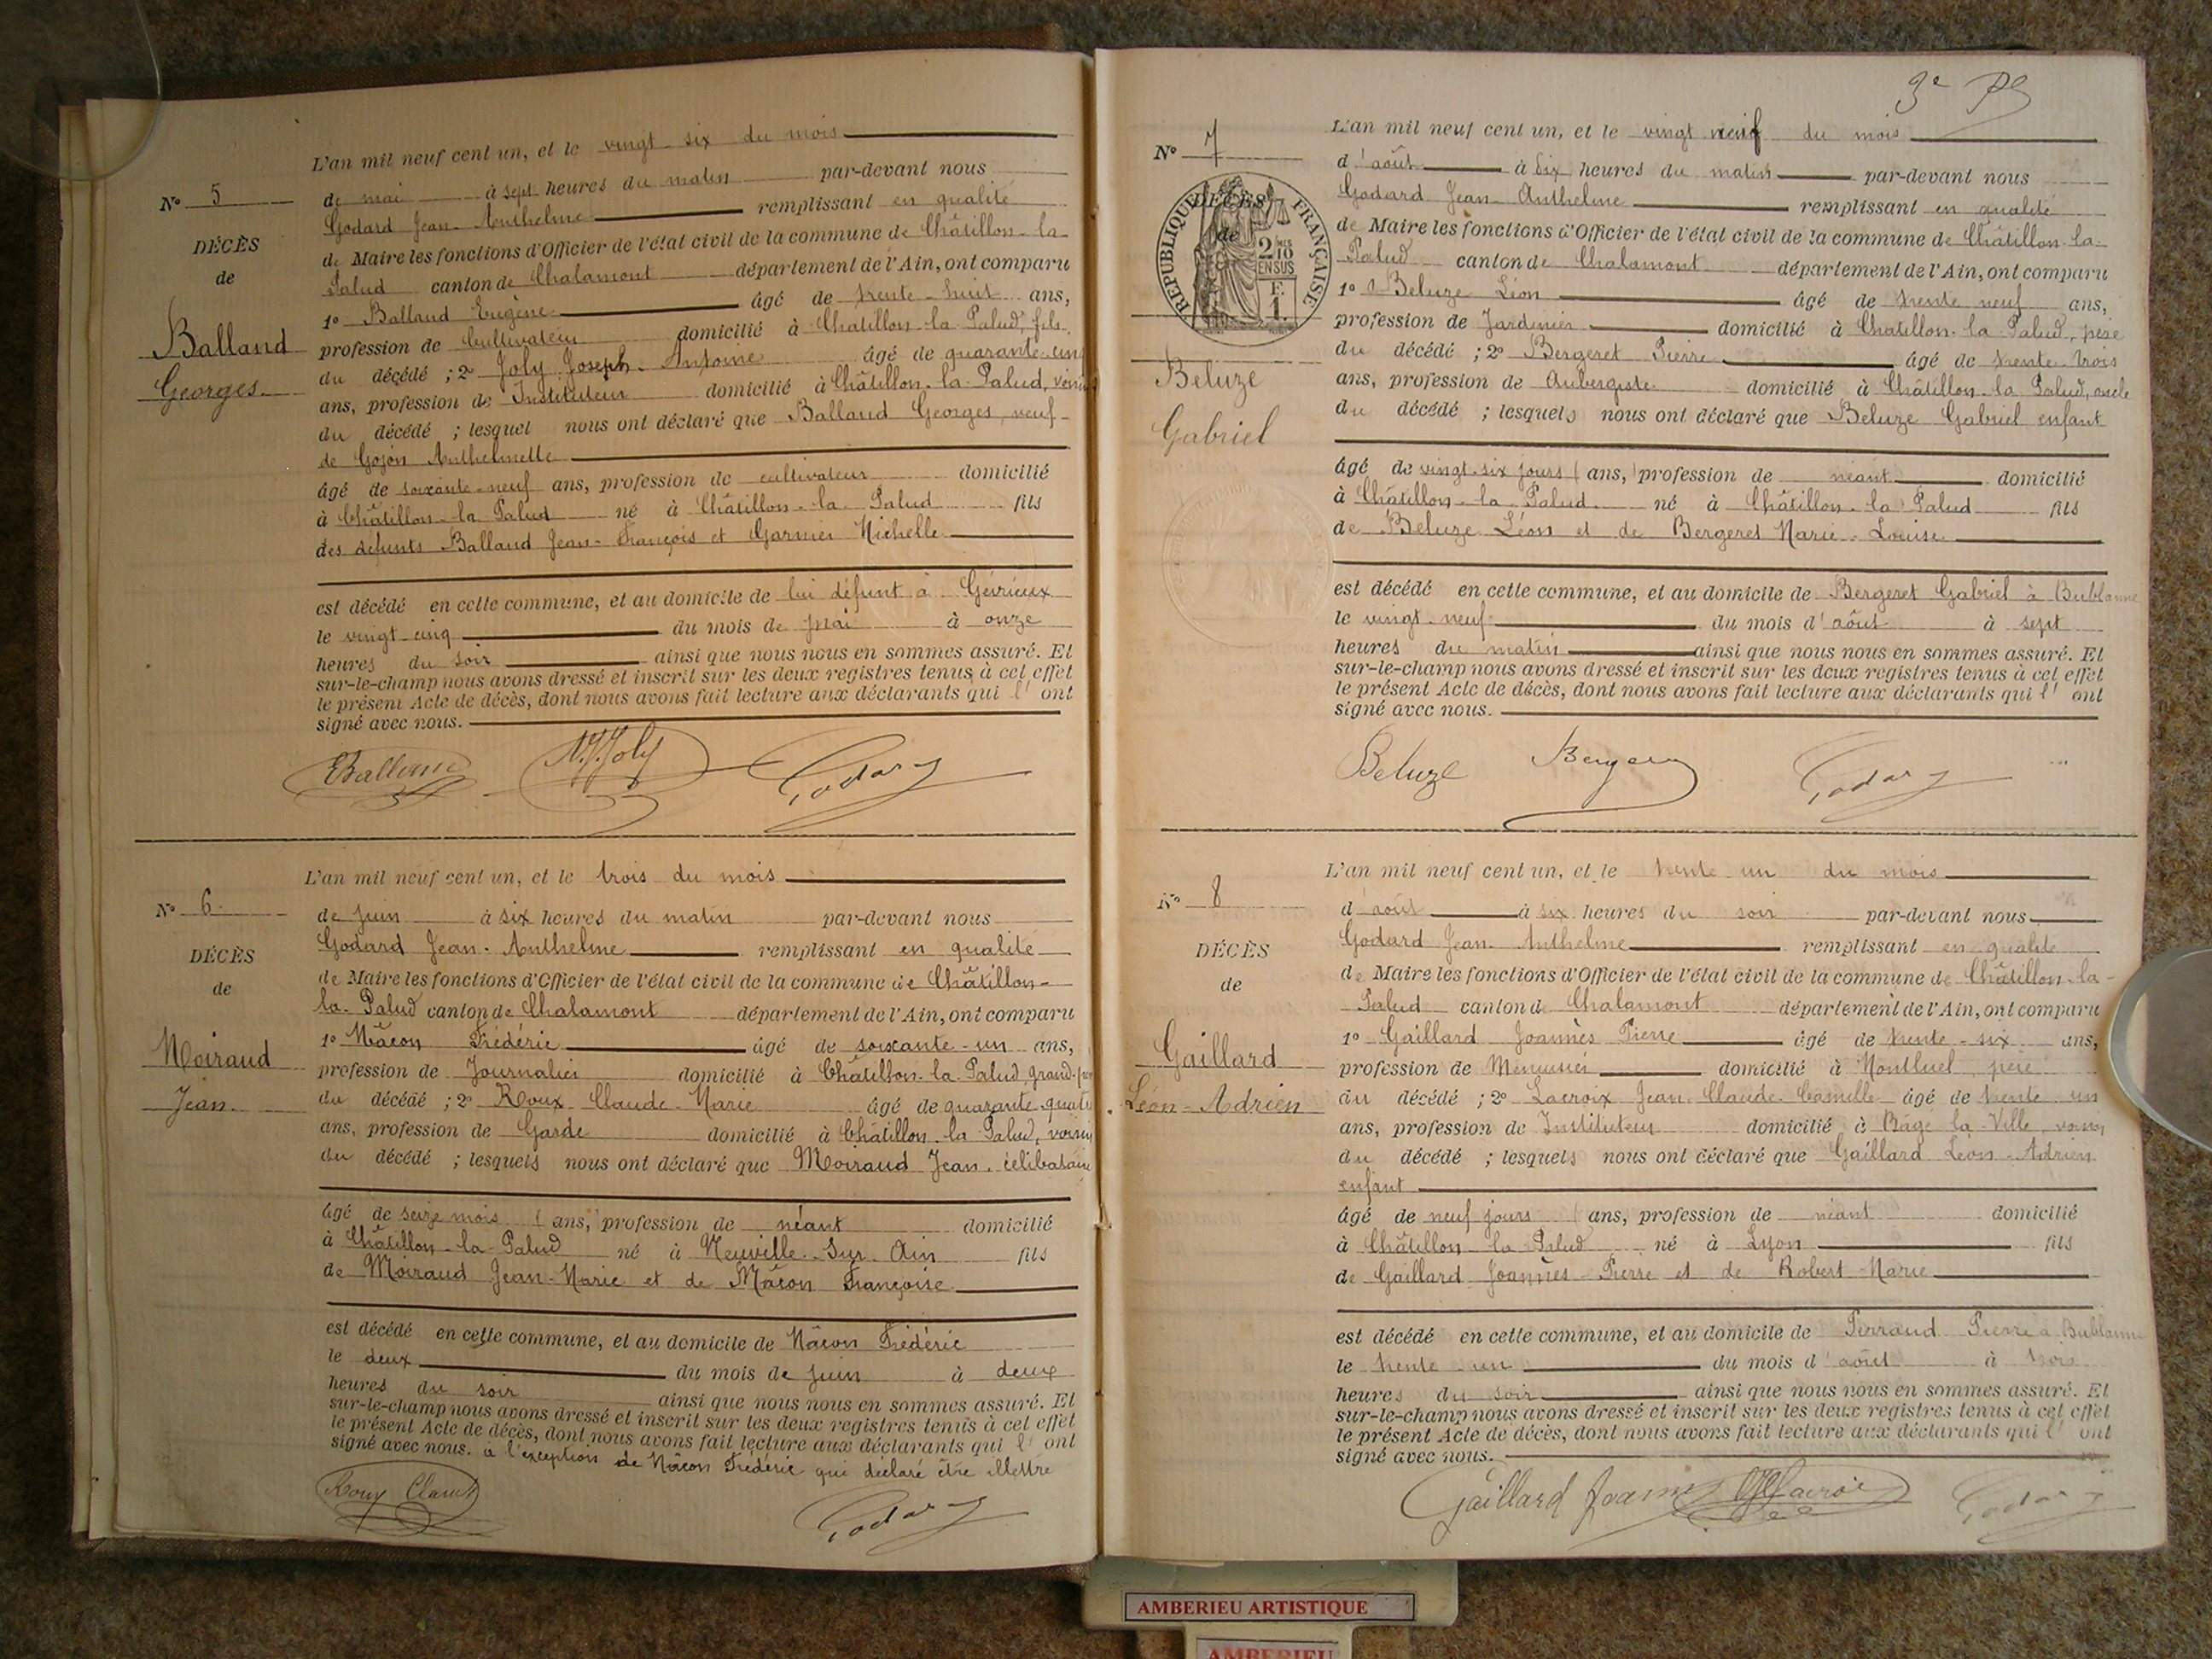 L'an mil neuf cent un, et le vingt-six du mois
N° 5
de mai à sept heures du matin par-devant nous
Godard Jean-Anthelme remplissant en qualité
DÉCÈS
de Maire les fonctions d'Officier de l'état civil de la commune de Châtillon-la-
de
Palud canton de Chalamont département de l'Ain, ont comparu
1° Balland Eugène âgé de trente-huit ans,
Balland
profession de Cultivateur domicilié à Châtillon-la-Palud, fils
du décédé ; 2° Joly Joseph-Antoine âgé de quarante-cinq
Georges
ans, profession de Instituteur domicilié à Châtillon-la-Palud, voisin
du décédé ; lesquel nous ont déclaré que Balland Georges, veuf
de Gojon Anthelmette
âgé de soixante-neuf ans, profession de cultivateur domicilié
à Châtillon-la-Palud né à Châtillon-la-Palud fils
des défunts Balland Jean-François et Garnier Michelle
est décédé en cette commune, et au domicile de lui défunt à Gévrieux
le vingt-cinq du mois de mai à onze
heures du soir ainsi que nous nous en sommes assuré. Et
sur-le-champ nous avons dressé et inscrit sur les deux registres tenus à cet effet
le présent Acte de décès, dont nous avons fait lecture aux déclarants qui l' ont
signé avec nous.
Balland Joly Godard
L'an mil neuf cent un, et le trois du mois
N° 6
de juin à six heures du matin par-devant nous
Godard Jean-Anthelme remplissant en qualité
DÉCÈS
de Maire les fonctions d'Officier de l'état civil de la commune de Châtillon-
de
la-Palud canton de Chalamont département de l'Ain, ont comparu
1° Mâcon Frédéric âgé de soixante-un ans,
Moiraud
profession de Journalier domicilié à Châtillon-la-Palud, grand-père
Jean
du décédé ; 2° Roux Claude-Marie âgé de quarante-quatre
ans, profession de Garde domicilié à Châtillon-la-Palud, voisin
du décédé ; lesquels nous ont déclaré que Moiraud Jean, célibataire
âgé de seize mois ( ans,) profession de néant domicilié
à Châtillon-la-Palud né à Neuville-sur-Ain fils
de Moiraud Jean-Marie et de Mâcon Françoise
est décédé en cette commune, et au domicile de Mâcon Frédéric
le deux du mois de juin à deux
heures du soir ainsi que nous nous en sommes assuré. Et
sur-le-champ nous avons dressé et inscrit sur les deux registres tenus à cet effet
le présent Acte de décès, dont nous avons fait lecture aux déclarants qui l' ont
signé avec nous. à l'exception de Mâcon Frédéric qui déclaré être illettré
Roux Claude Godard
3e
L'an mil neuf cent un, et le vingt neuf du mois
N° 7
d'août à dix heures du matin par-devant nous
Godard Jean-Anthelme remplissant en qualité
DÉCÈS
de
RÉPUBLIQUE FRANÇAISE
2/10 EN SUS
F. 1.
de Maire les fonctions d'Officier de l'état civil de la commune de Châtillon-la-
Palud canton de Chalamont département de l'Ain, ont comparu
1° Beluze Léon âgé de trente neuf ans,
profession de Jardinier domicilié à Châtillon-la-Palud, père
du décédé ; 2° Bergeret Pierre âgé de trente-trois
Beluze
ans, profession de Aubergiste domicilié à Châtillon-la-Palud, oncle
du décédé ; lesquels nous ont déclaré que Beluze Gabriel enfant
Gabriel
âgé de vingt-six jours ( ans,) profession de néant domicilié
à Châtillon-la-Palud né à Châtillon-la-Palud fils
de Beluze Léon et de Bergeret Marie-Louise
est décédé en cette commune, et au domicile de Bergeret Gabriel à Bublanne
le vingt-neuf du mois d'août à sept
heures du matin ainsi que nous nous en sommes assuré. Et
sur-le-champ nous avons dressé et inscrit sur les deux registres tenus à cet effet
le présent Acte de décès, dont nous avons fait lecture aux déclarants qui l' ont
signé avec nous.
Beluze Bergeret Godard
L'an mil neuf cent un, et le trente-un du mois
N° 8
d'août à six heures du soir par-devant nous
Godard Jean-Anthelme remplissant en qualité
DÉCÈS
de Maire les fonctions d'Officier de l'état civil de la commune de Châtillon-la-
de
Palud canton de Chalamont département de l'Ain, ont comparu
1° Gaillard Joannès Pierre âgé de trente-six ans,
Gaillard
profession de Menuisier domicilié à Montluel, père
Léon-Adrien
du décédé ; 2° Lacroix Jean-Claude-Camille âgé de trente-un
ans, profession de Instituteur domicilié à Bâgé-la-Ville, voisin
du décédé ; lesquels nous ont déclaré que Gaillard Léon-Adrien
enfant
âgé de neuf jours ( ans, profession de néant domicilié
à Châtillon-la-Palud né à Lyon fils
de Gaillard Joannès-Pierre et de Robert Marie
est décédé en cette commune, et au domicile de Perraud Pierre à Bublanne
le trente-un du mois d'août à trois
heures du soir ainsi que nous nous en sommes assuré. Et
sur-le-champ nous avons dressé et inscrit sur les deux registres tenus à cet effet
le présent Acte de décès, dont nous avons fait lecture aux déclarants qui l' ont
signé avec nous.
Gaillard Joannès Lacroix Godard
AMBERIEU ARTISTIQUE
AMBERIEU